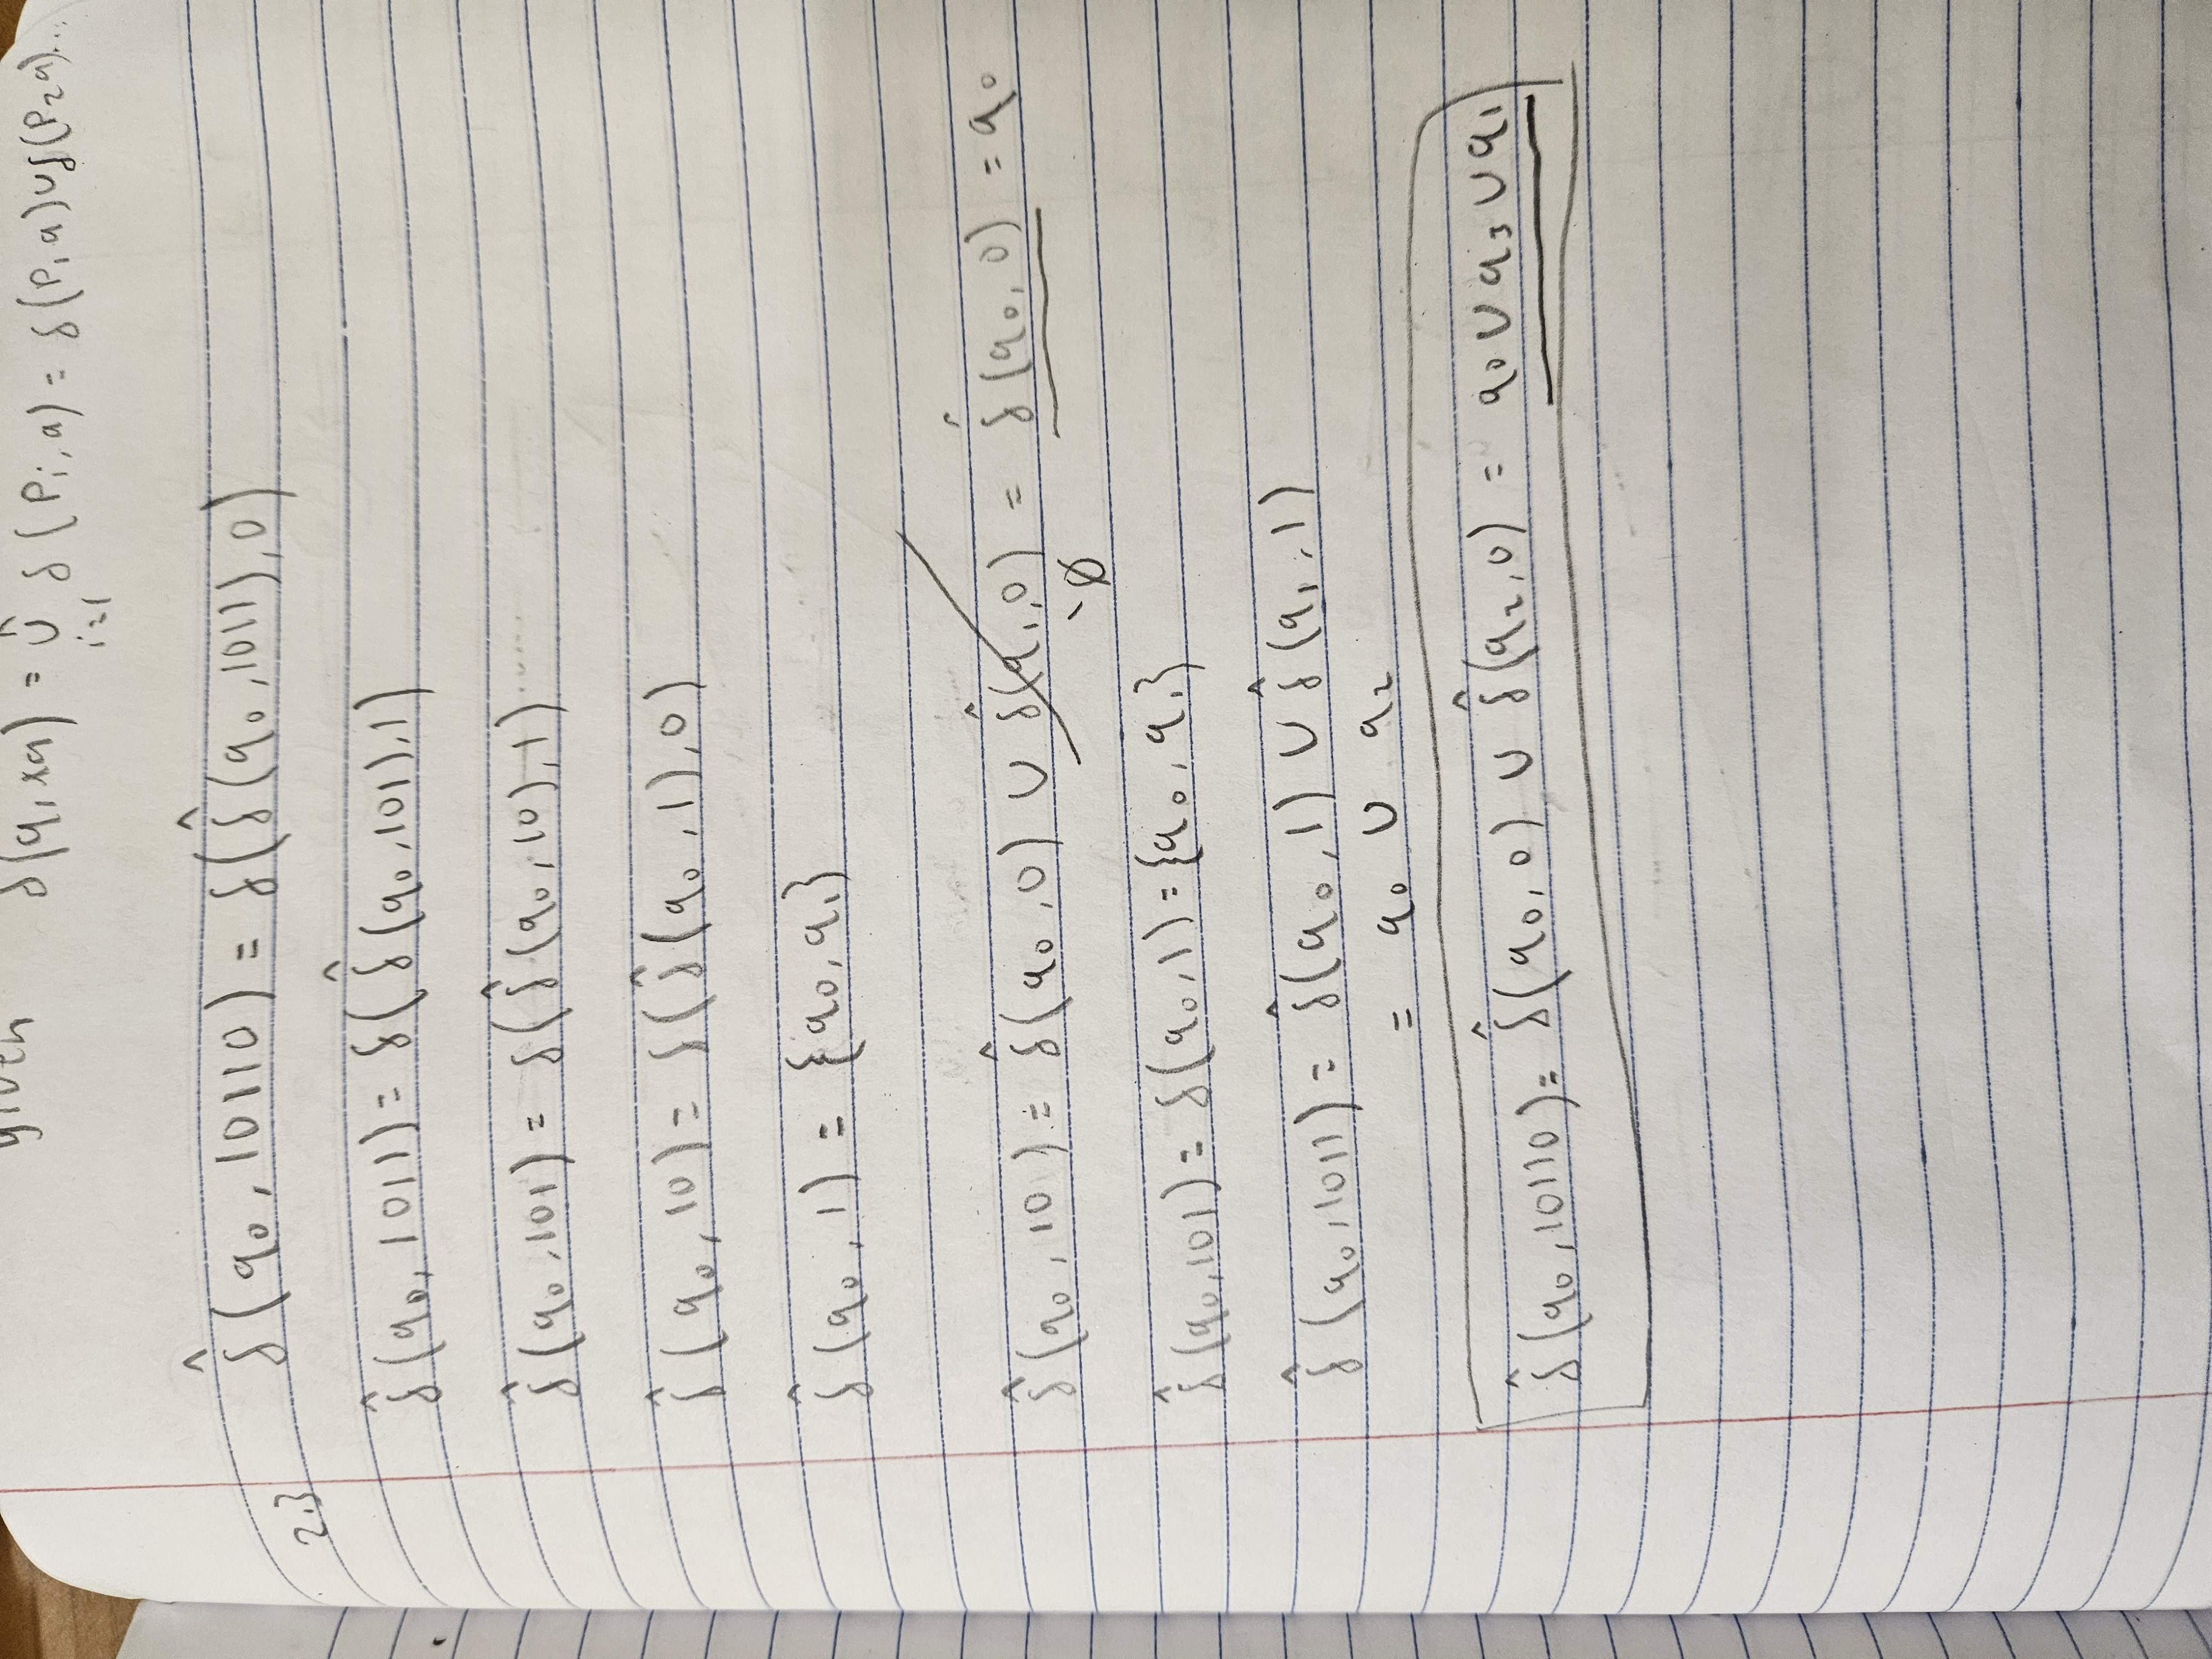 given δ(q, xa) = ∪̂ i=1 δ(Pi, a) = δ(P1 a) ∪ δ(P2 a)...
2.3 δ̂(q0, 10110) = δ(δ̂(q0, 1011), 0)
δ̂(q0, 1011) = δ(δ̂(q0, 101), 1)
δ̂(q0, 101) = δ(δ̂(q0, 10), 1)
δ̂(q0, 10) = δ(δ̂(q0, 1), 0)
δ̂(q0, 1) = {q0, q1}
δ̂(q0, 10) = δ̂(q0, 0) ∪ δ̂(q1, 0) = δ̂(q0, 0) = q0
∅
δ̂(q0, 101) = δ(q0, 1) = {q0, q1}
δ̂(q0, 1011) = δ̂(q0, 1) ∪ δ̂(q1, 1)
= q0 ∪ q2
δ̂(q0, 10110) = δ̂(q0, 0) ∪ δ̂(q2, 0) = q0 ∪ q3 ∪ q1